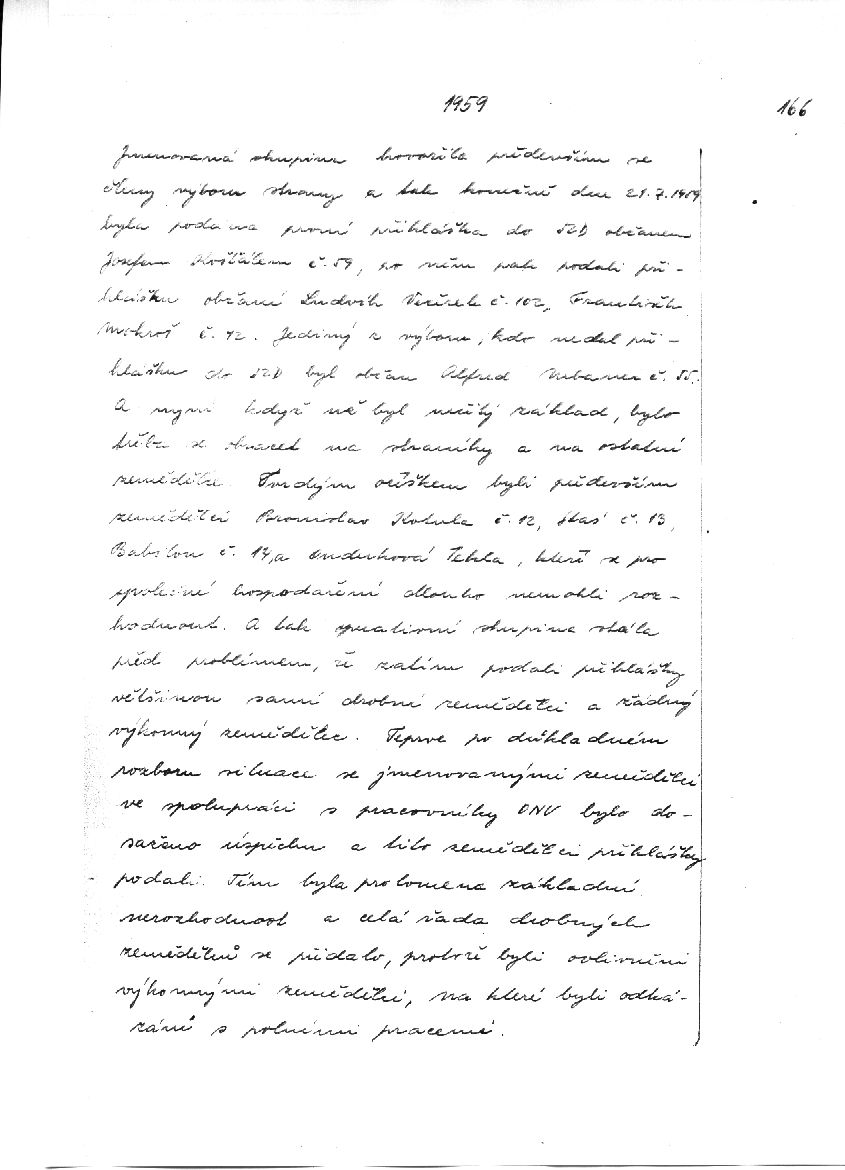 1959
166
Jmenovaná skupina hovořila především se
členy výboru strany a tak konečně dne 21.7.1959
byla podána první přihláška do JZD občanem
Josefem Košťálem č. 59, po něm pak podali při-
hlášku občané Ludvík Večírek č. 102, František
Mokroš č. 42. Jediný z výboru, kdo nedal při-
hlášku do JZD byl občan Alfred Urbanec č. 55.
A nyní když už byl určitý základ, bylo
třeba se obracet na straníky a na ostatní
zemědělce. Tvrdým oříškem byli především
zemědělci Bronislav Kotula č. 12, Staś č. 13,
č. 14, a Ondruchová Tekla, kteří se pro
společné hospodaření dlouho nemohli roz-
hodnout. A tak operativní skupina stála
před problémem, že zatím podali přihlášky
většinou samí drobní zemědělci a žádný
výkonný zemědělec. Teprve po důkladném
rozboru situace se jmenovanými zemědělci
ve spolupráci s pracovníky ONV bylo do-
saženo úspěchu a tito zemědělci přihlášky
podali. Tím byla prolomena základní
nerozhodnost a celá řada drobných
zemědělců se přidalo, protože byli ovlivněni
výkonnými zemědělci, na které byli odká-
záni s polními pracemi.